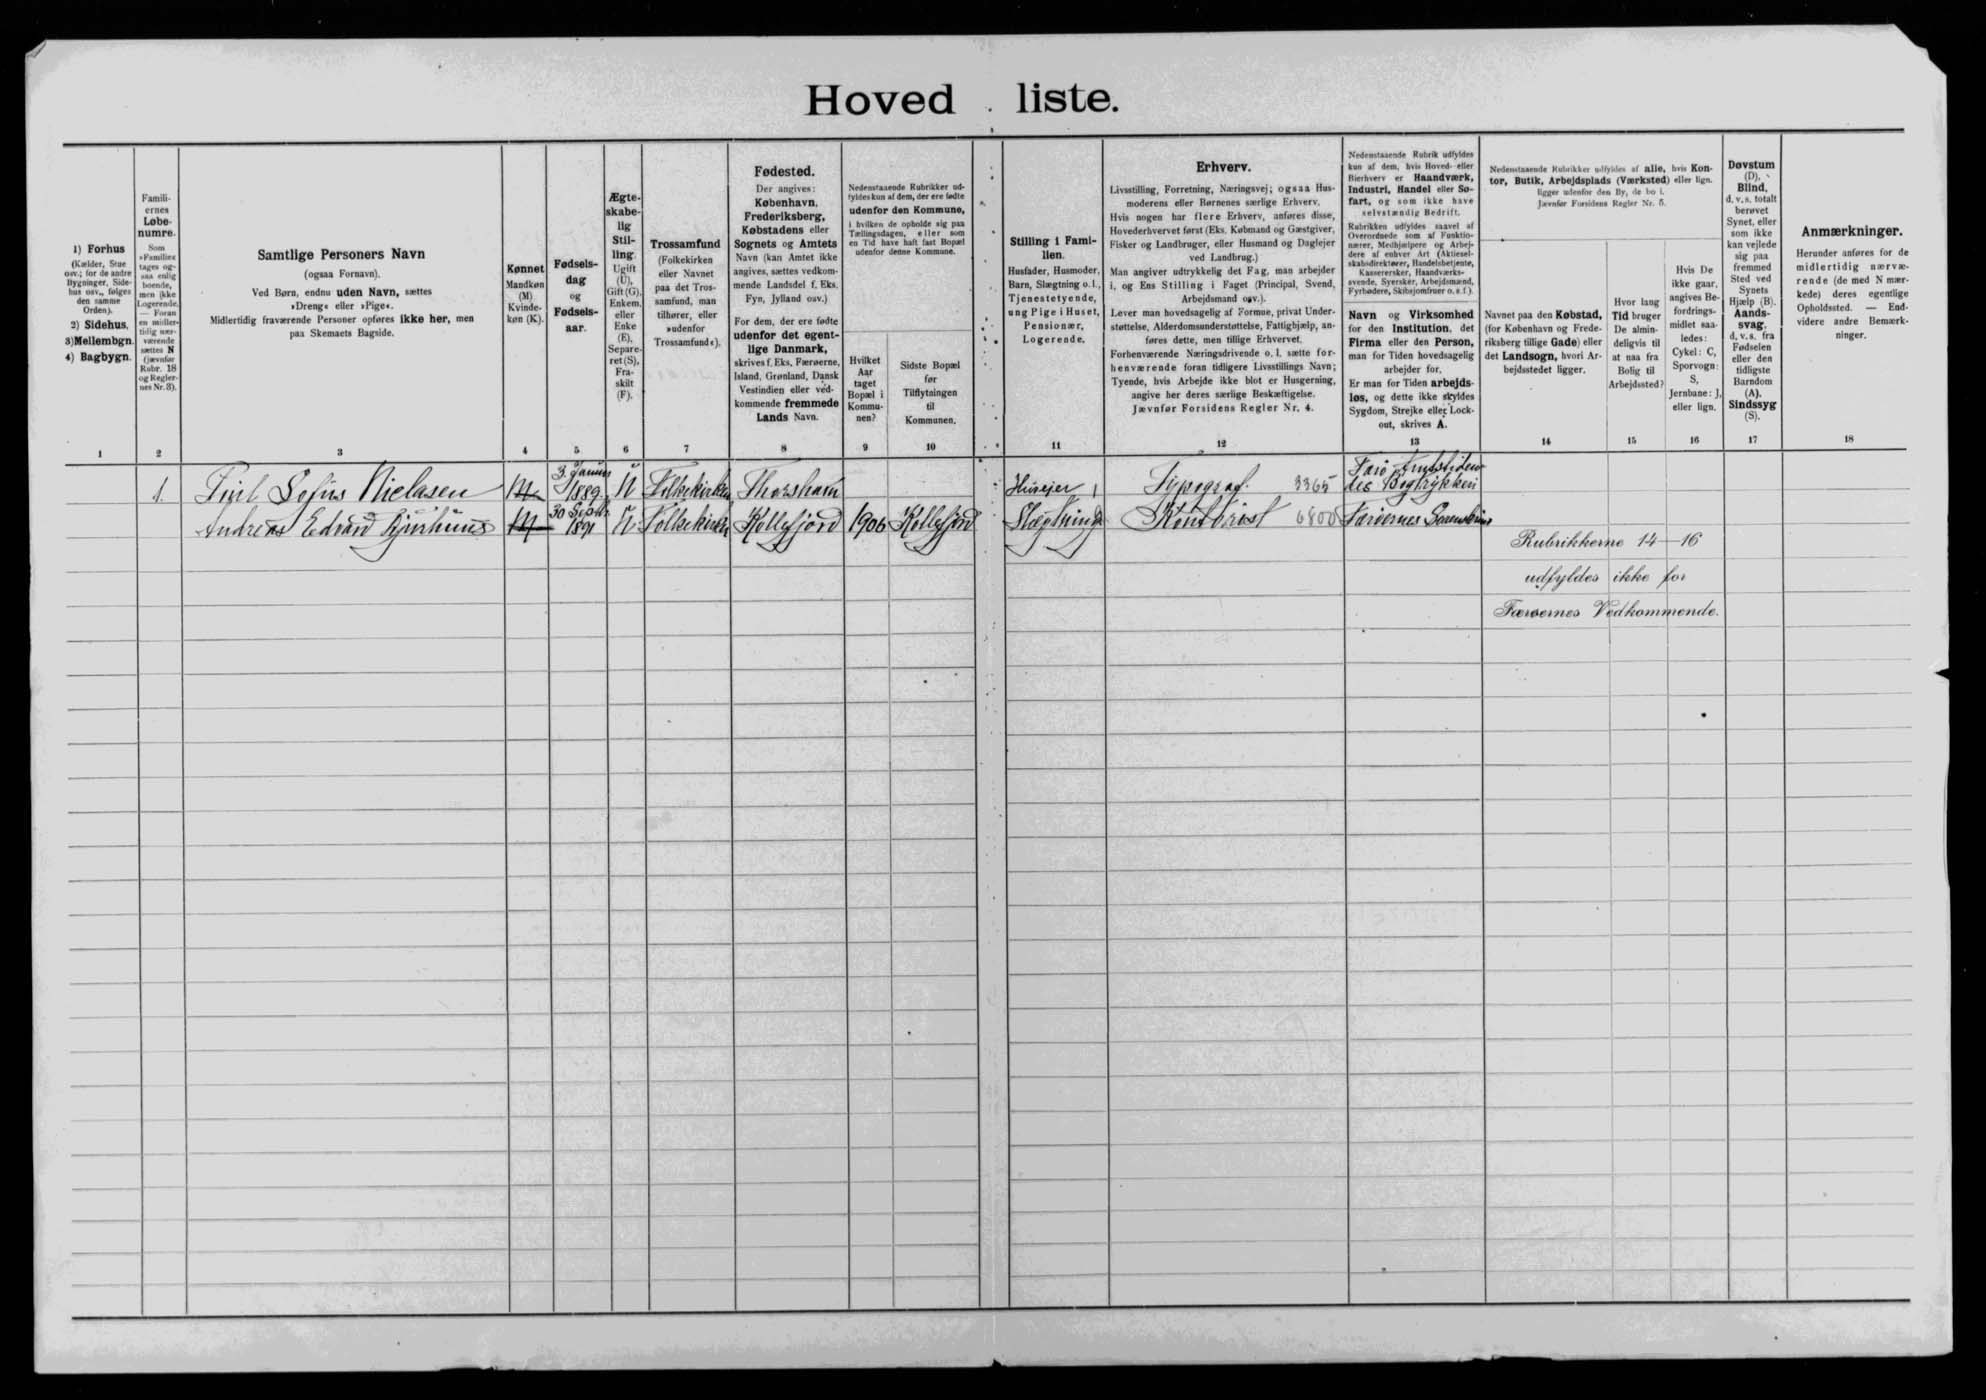 Hoved liste.
1) Forhus
(Kælder, Stue
osv.; for de andre
Bygninger, Side-
hus osv., følges
den samme
Orden).
2) Sidehus,
3) Mellembgn.
4) Bagbygn.
1
Famili-
ernes
Løbe-
numre.
Som
»Familie«
tages og-
saa enlig
boende,
men ikke
Logerende.
— Foran
en midler-
tidig nær-
værende
sættes N
(jævnfør
Rubr. 18
og Regler-
nes Nr. 3).
2
Samtlige Personers Navn
(ogsaa Fornavn).
Ved Børn, endnu uden Navn, sættes
»Dreng« eller »Pige«.
Midlertidig fraværende Personer opføres ikke her, men
paa Skemaets Bagside.
3
Kønnet
Mandkøn
(M)
Kvinde-
køn (K).
4
Fødsels-
dag
og
Fødsels-
aar.
5
Ægte-
skabe-
lig
Stil-
ling.
Ugift
(U),
Gift (G),
Enkem.
eller
Enke
(E),
Separe-
ret (S),
Fra-
skilt
(F).
6
Trossamfund
(Folkekirken
eller Navnet
paa det Tros-
samfund, man
tilhører, eller
»udenfor
Trossamfund«).
7
Fødested.
Der angives:
København,
Frederiksberg,
Købstadens eller
Sognets og Amtets
Navn (kan Amtet ikke
angives, sættes vedkom-
mende Landsdel f. Eks.
Fyn, Jylland osv.)
For dem, der ere fødte
udenfor det egent-
lige Danmark,
skrives f. Eks. Færøerne,
Island, Grønland, Dansk
Vestindien eller ved-
kommende fremmede
Lands Navn.
8
Nedenstaaende Rubrikker ud-
fyldes kun af dem, der ere fødte
udenfor den Kommune,
i hvilken de opholde sig paa
Tællingsdagen, eller som
en Tid have haft fast Bopæl
udenfor denne Kommune.
Hvilket
Aar
taget
Bopæl i
Kommu-
nen?
9
Sidste Bopæl
før
Tilflytningen
til
Kommunen.
10
Stilling i Fami-
lien.
Husfader, Husmoder,
Barn, Slægtning o. l.,
Tjenestetyende,
ung Pige i Huset,
Pensionær,
Logerende.
11
Erhverv.
Livsstilling, Forretning, Næringsvej; ogsaa Hus-
moderens eller Børnenes særlige Erhverv.
Hvis nogen har flere Erhverv, anføres disse,
Hovederhvervet først (Eks. Købmand og Gæstgiver,
Fisker og Landbruger, eller Husmand og Daglejer
ved Landbrug.)
Man angiver udtrykkelig det Fag, man arbejder
i, og Ens Stilling i Faget (Principal, Svend,
Arbejdsmand osv.).
Lever man hovedsagelig af Formue, privat Under-
støttelse, Alderdomsunderstøttelse, Fattighjælp, an-
føres dette, men tillige Erhvervet.
Forhenværende Næringsdrivende o. l. sætte for-
henværende foran tidligere Livsstillings Navn;
Tyende, hvis Arbejde ikke blot er Husgerning,
angive her deres særlige Beskæftigelse.
Jævnfør Forsidens Regler Nr. 4.
12
Nedenstaaende Rubrik udfyldes
kun af dem, hvis Hoved- eller
Bierhverv er Haandværk,
Industri, Handel eller Sø-
fart, og som ikke have
selvstændig Bedrift.
Rubrikken udfyldes saavel af
Overordnede som af Funktio-
nærer, Medhjælpere og Arbej-
dere af enhver Art (Aktiesel-
skabsdirektører, Handelsbetjente,
Kasserersker, Haandværks-
svende, Syersker, Arbejdsmænd,
Fyrbødere, Skibsjomfruer o. s. f.).
Navn og Virksomhed
for den Institution, det
Firma eller den Person,
man for Tiden hovedsagelig
arbejder for.
Er man for Tiden arbejds-
løs, og dette ikke skyldes
Sygdom, Strejke eller Lock-
out, skrives A.
13
Nedenstaaende Rubrikker udfyldes af alle, hvis Kon-
tor, Butik, Arbejdsplads (Værksted) eller lign.
ligger udenfor den By, de bo i.
Jævnfør Forsidens Regler Nr. 5.
Navnet paa den Købstad,
(for København og Frede-
riksberg tillige Gade) eller
det Landsogn, hvori Ar-
bejdsstedet ligger.
14
Hvor lang
Tid bruger
De almin-
deligvis til
at naa fra
Bolig til
Arbejdssted?
15
Hvis De
ikke gaar,
angives Be-
fordrings-
midlet saa-
ledes:
Cykel: C,
Sporvogn:
S,
Jernbane: J,
eller lign.
16
Døvstum
(D),
Blind,
d. v. s. totalt
berøvet
Synet, eller
som ikke
kan vejlede
sig paa
fremmed
Sted ved
Synets
Hjælp (B).
Aands-
svag,
d. v. s. fra
Fødselen
eller den
tidligste
Barndom
(A).
Sindssyg
(S).
17
Anmærkninger.
Herunder anføres for de
midlertidig nærvæ-
rende (de med N mær-
kede) deres egentlige
Opholdssted. — End-
videre andre Bemærk-
ninger.
18
1. Sofus Nielasen M 3. Januar 1889 U Folkekirken Thorshavn Husejer 1 Typograf. 3365
Andreas Edvard M 30 Septb. 1891 U Folkekirken Kollefjord 1906 Kollefjord Slægtning Kontorist 6800 Færøernes
Rubrikkerne 14—16
udfyldes ikke for
Færøernes Vedkommende.